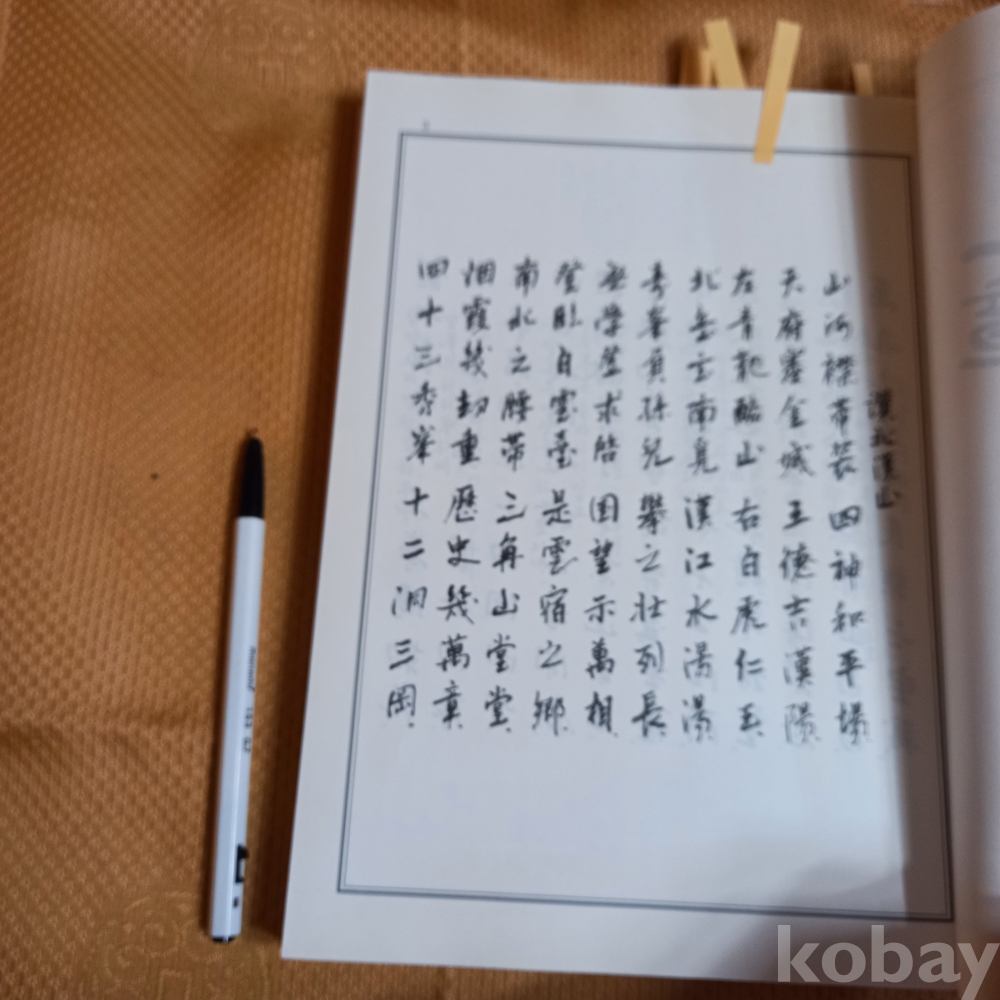 讚北漢山
山河襟帶裝 四神和平場
天府塞金城 王德吉漢陽
左青龍駱山 右白虎仁王
北岳玄南見 漢江水湯湯
秀峯負孫兒 擧之壯列長
登學登求皓 回望示萬相
登臥自雲臺 是雲宿之鄕
南水之腰帶 三角山堂堂
烟霞幾劫重 歷史幾萬章
四十三秀峯 十二洞三岡
kobay